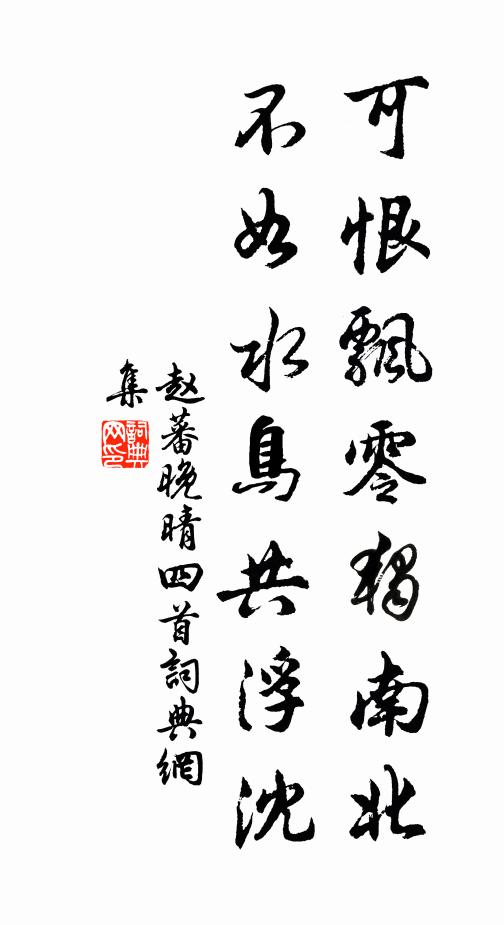 可恨飄零獨南北
不如水鳥共浮沈
赵蕃晚晴四首詞典網
集
詞典
网印